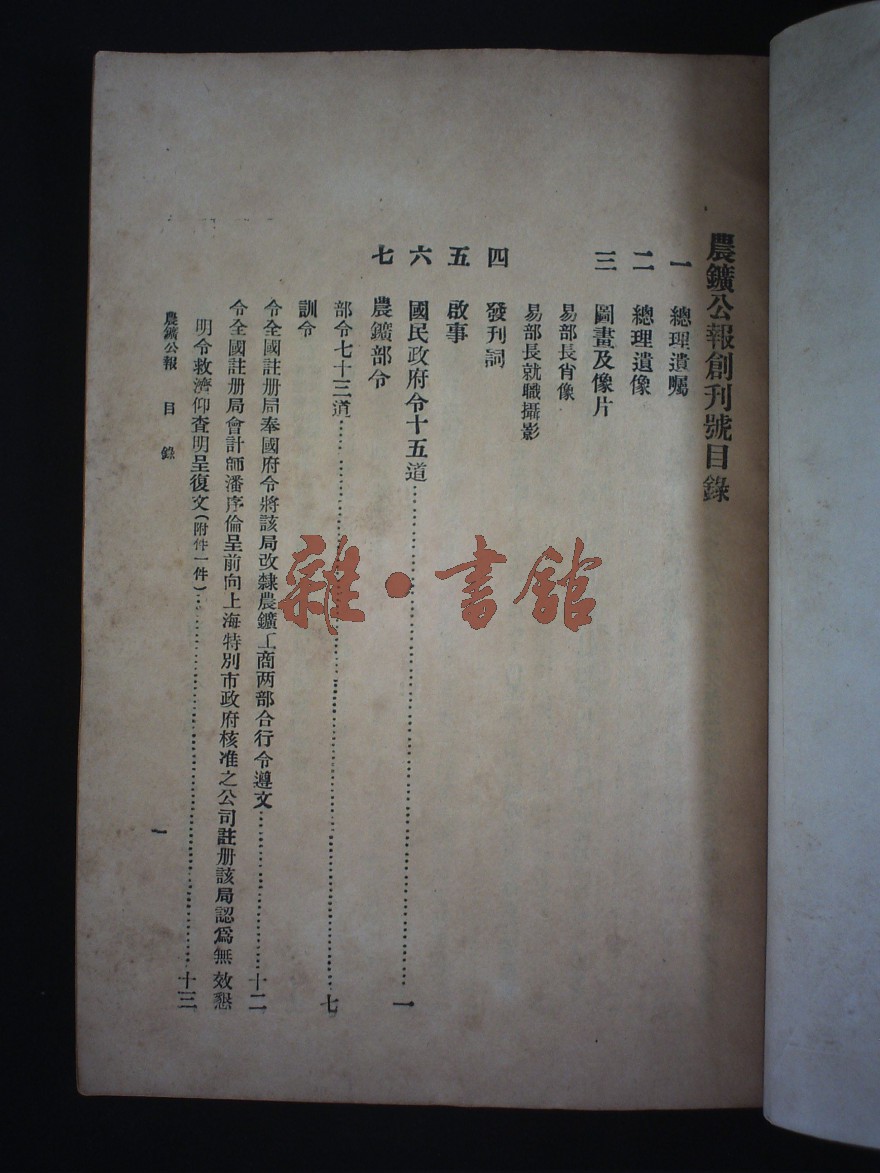 農鑛公報創刊號目錄
一 總理遺囑
二 總理遺像
三 圖畫及像片
易部長肖像
易部長就職攝影
四 發刊詞
五 啟事
六 國民政府令十五道……一
七 農鑛部令
部令七十三道……七
訓令
令全國註册局奉國府令將該局改隸農鑛工商两部合行令遵文……十二
令全國註册局會計師潘序倫呈前向上海特別市政府核准之公司註册該局認爲無效懇
明令救濟仰查明呈復文(附件一件)……十三
農鑛公報 目錄
一
雜·書館